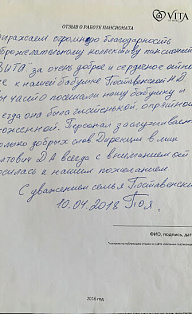 VITA
ОТЗЫВ О РАБОТЕ ПАНСИОНАТА
выражаем огромную благодарность
доброжелательному коллективу пансионата
"ВИТА" за очень доброе и сердечное отно
к нашей бабушке Поставской Н.Д.
часто посещали нашу бабушку и
она была спокойной, опрятной
Персонал заслуживает
только добрых слов. Дирекция в лице
Д.А. всегда с вниманием от
носилась к нашим пожеланиям
С уважением семья Поставских
10.04.2018
ФИО, подпись, дат
2018 год